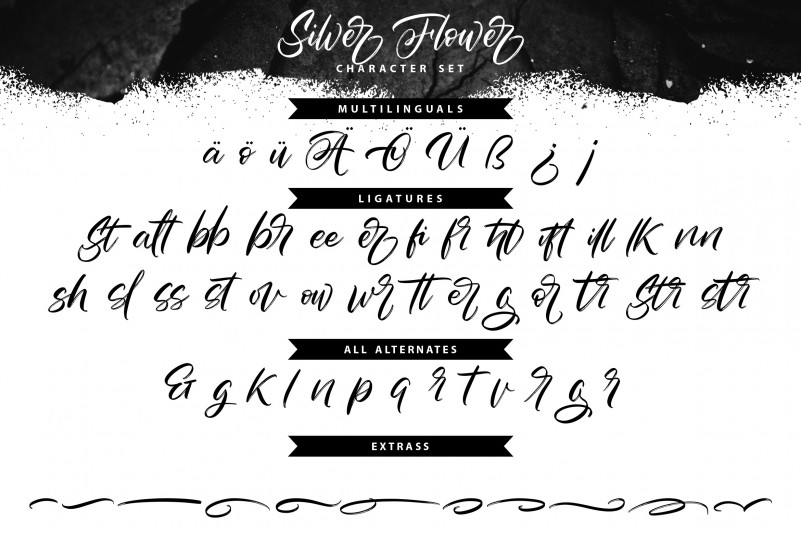 Silver Flower
CHARACTER SET
MULTILINGUALS
ä ö ü Ä Ö Ü ß ¿ j
LIGATURES
St att bb br ee er fi fr tto ift ill lK nn
sh sl ss st ov ow wr tt er g or tr Str str
ALL ALTERNATES
& g K l n p q r t v r g r
EXTRASS